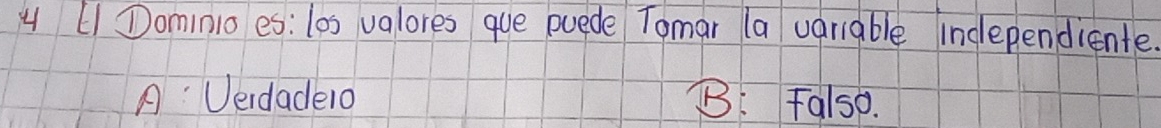 4 El Dominio es: los valores que puede Tomar la variable independiente.
A: Verdadero B: Falso.